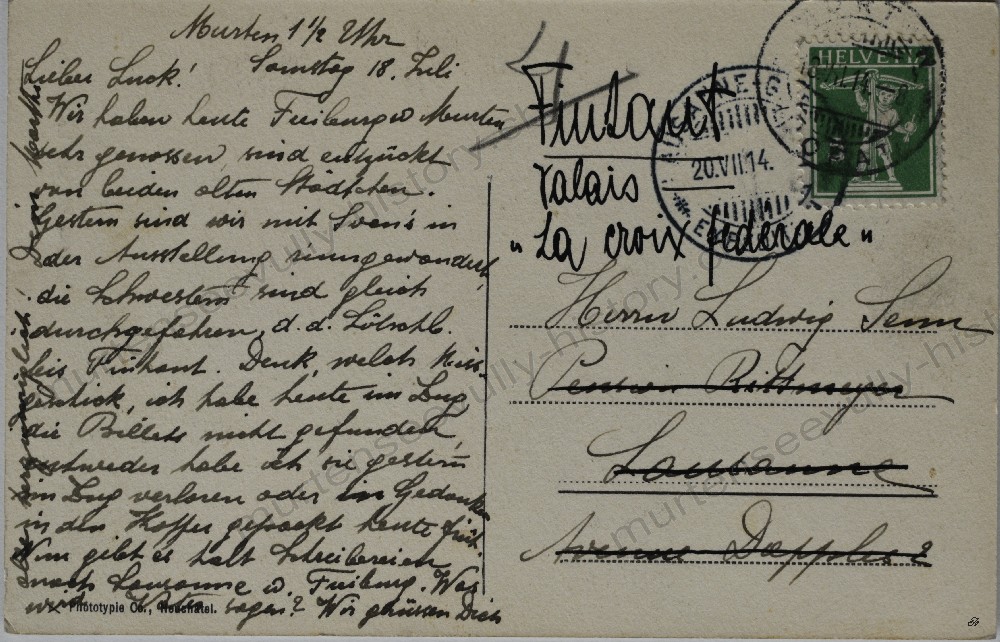 Murten 1½ Uhr
Samstag 18. Juli
Lieber Luck!
Wir haben heute Freiburg u Murten
sehr genossen, sind entzückt
von beiden alten Städtchen.
Gestern sind wir mit Sven's in
der Ausstellung rumgewandert,
die Schwestern sind gleich
durchgefahren, d. d. Lötschb.
bis Finhaut. Denk, welch Miss-
geschick, ich habe heute im Zug
die Billets nicht gefunden,
entweder habe ich sie gestern
im Zug verloren oder in Gedanken
in den Koffer gepackt heute früh.
Nun gibt es halt Schreibereien
nach Lausanne u. Freiburg. Was
wird Vater sagen? Wir grüssen Dich
Phototypie Co., Neuchâtel.
Finhaut
Valais
"La croix fédérale"
HELVETIA
20.VII.14.
Herrn Ludwig Senn
Pension Rittmeyer
Lausanne
Avenue Dapples 2
murtenseevully-history